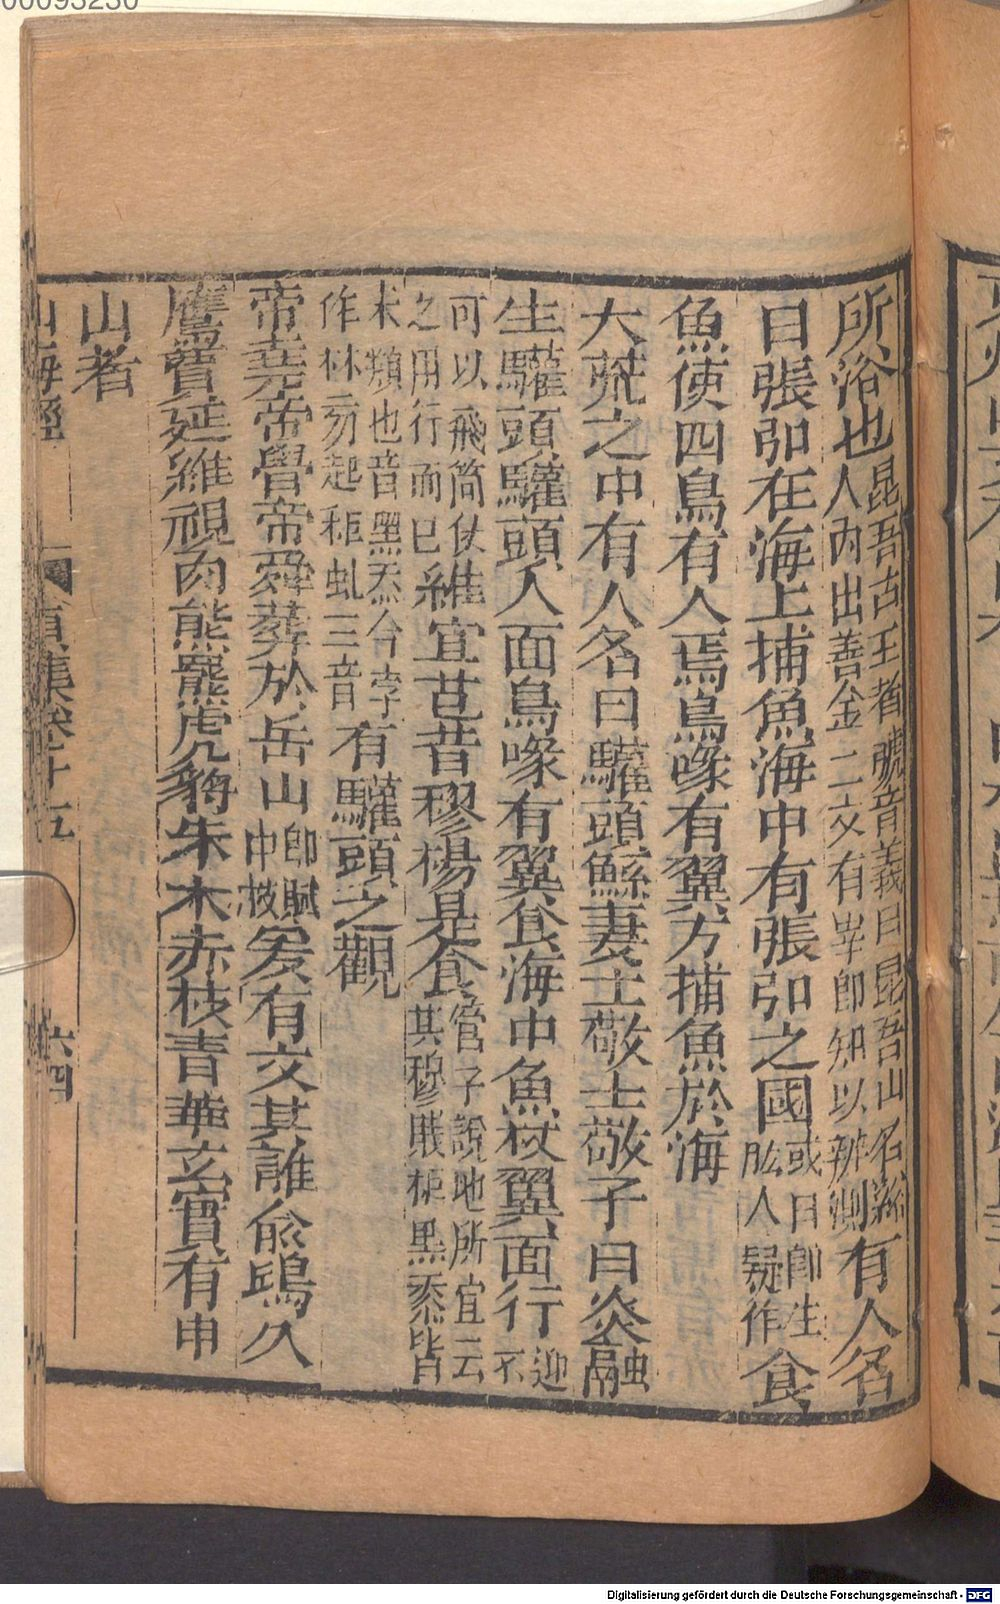 00095230
所浴也昆吾古王者號音義曰昆吾山名谿人內出善金二文有崋卽知以辨測有人名
曰張弘在海上捕魚海中有張弘之國或曰卽生肱人疑作食
魚使四鳥有人焉鳥喙有翼方捕魚於海
大荒之中有人名曰驩頭鯀妻士敬士敬子曰炎融
生驩頭驩頭人面鳥喙有翼食海中魚杖翼而行迎不
可以飛筒仗之用行而已維宜芑苣穋楊是食管子說地所宜云其穆賊秬黑黍皆
末類也音黑炁今字作秝勿起秬虬三音有驩頭之觀
帝堯帝嚳帝舜葬於岳山卽賦中枝爰有文其離俞鴟久
鷹賈延維視肉熊羆虎豹朱木赤枝青華玄實有申
山者
山海經 貞集卷十五 六四
Digitalisierung gefördert durch die Deutsche Forschungsgemeinschaft - DFG